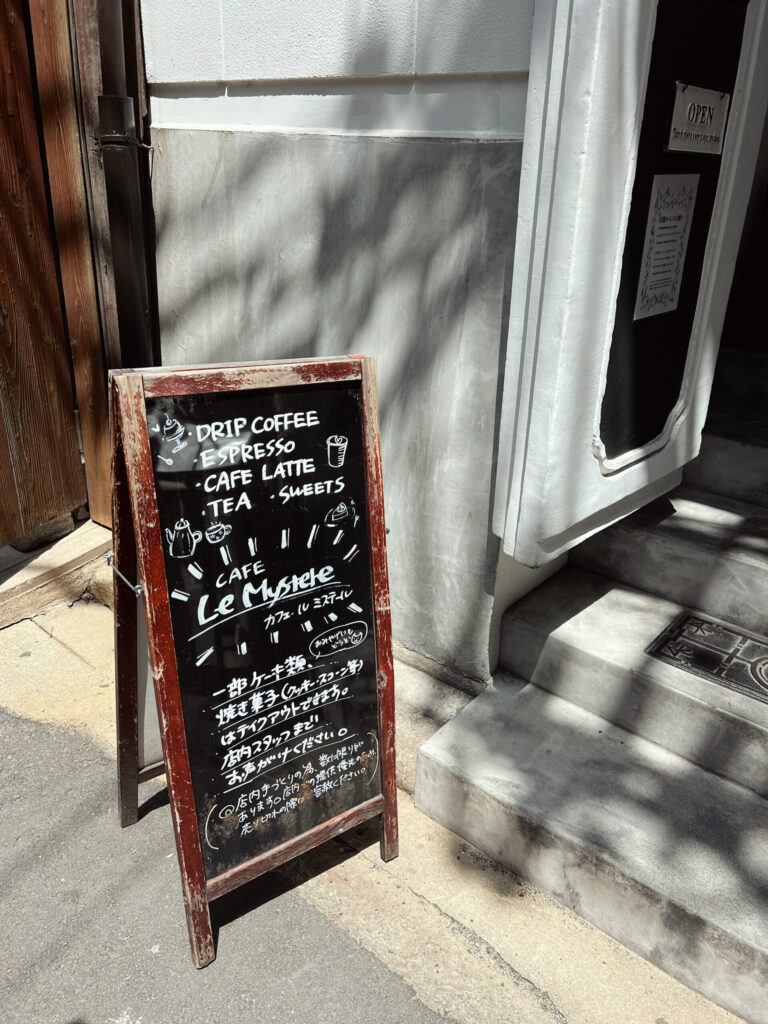 OPEN
・DRIP COFFEE
・ESPRESSO
・CAFE LATTE
・TEA ・SWEETS
CAFE
Le Mystere
カフェ・ル ミステール
おみやげにも
どうぞ
一部ケーキ類、
焼き菓子(クッキー・スコーン等)
はテイクアウトできます。
店内スタッフまで
お声がけください。
◎店内手づくりの為、数に限りが
あります。店内での提供優先のため、
売り切れの際はご容赦ください。